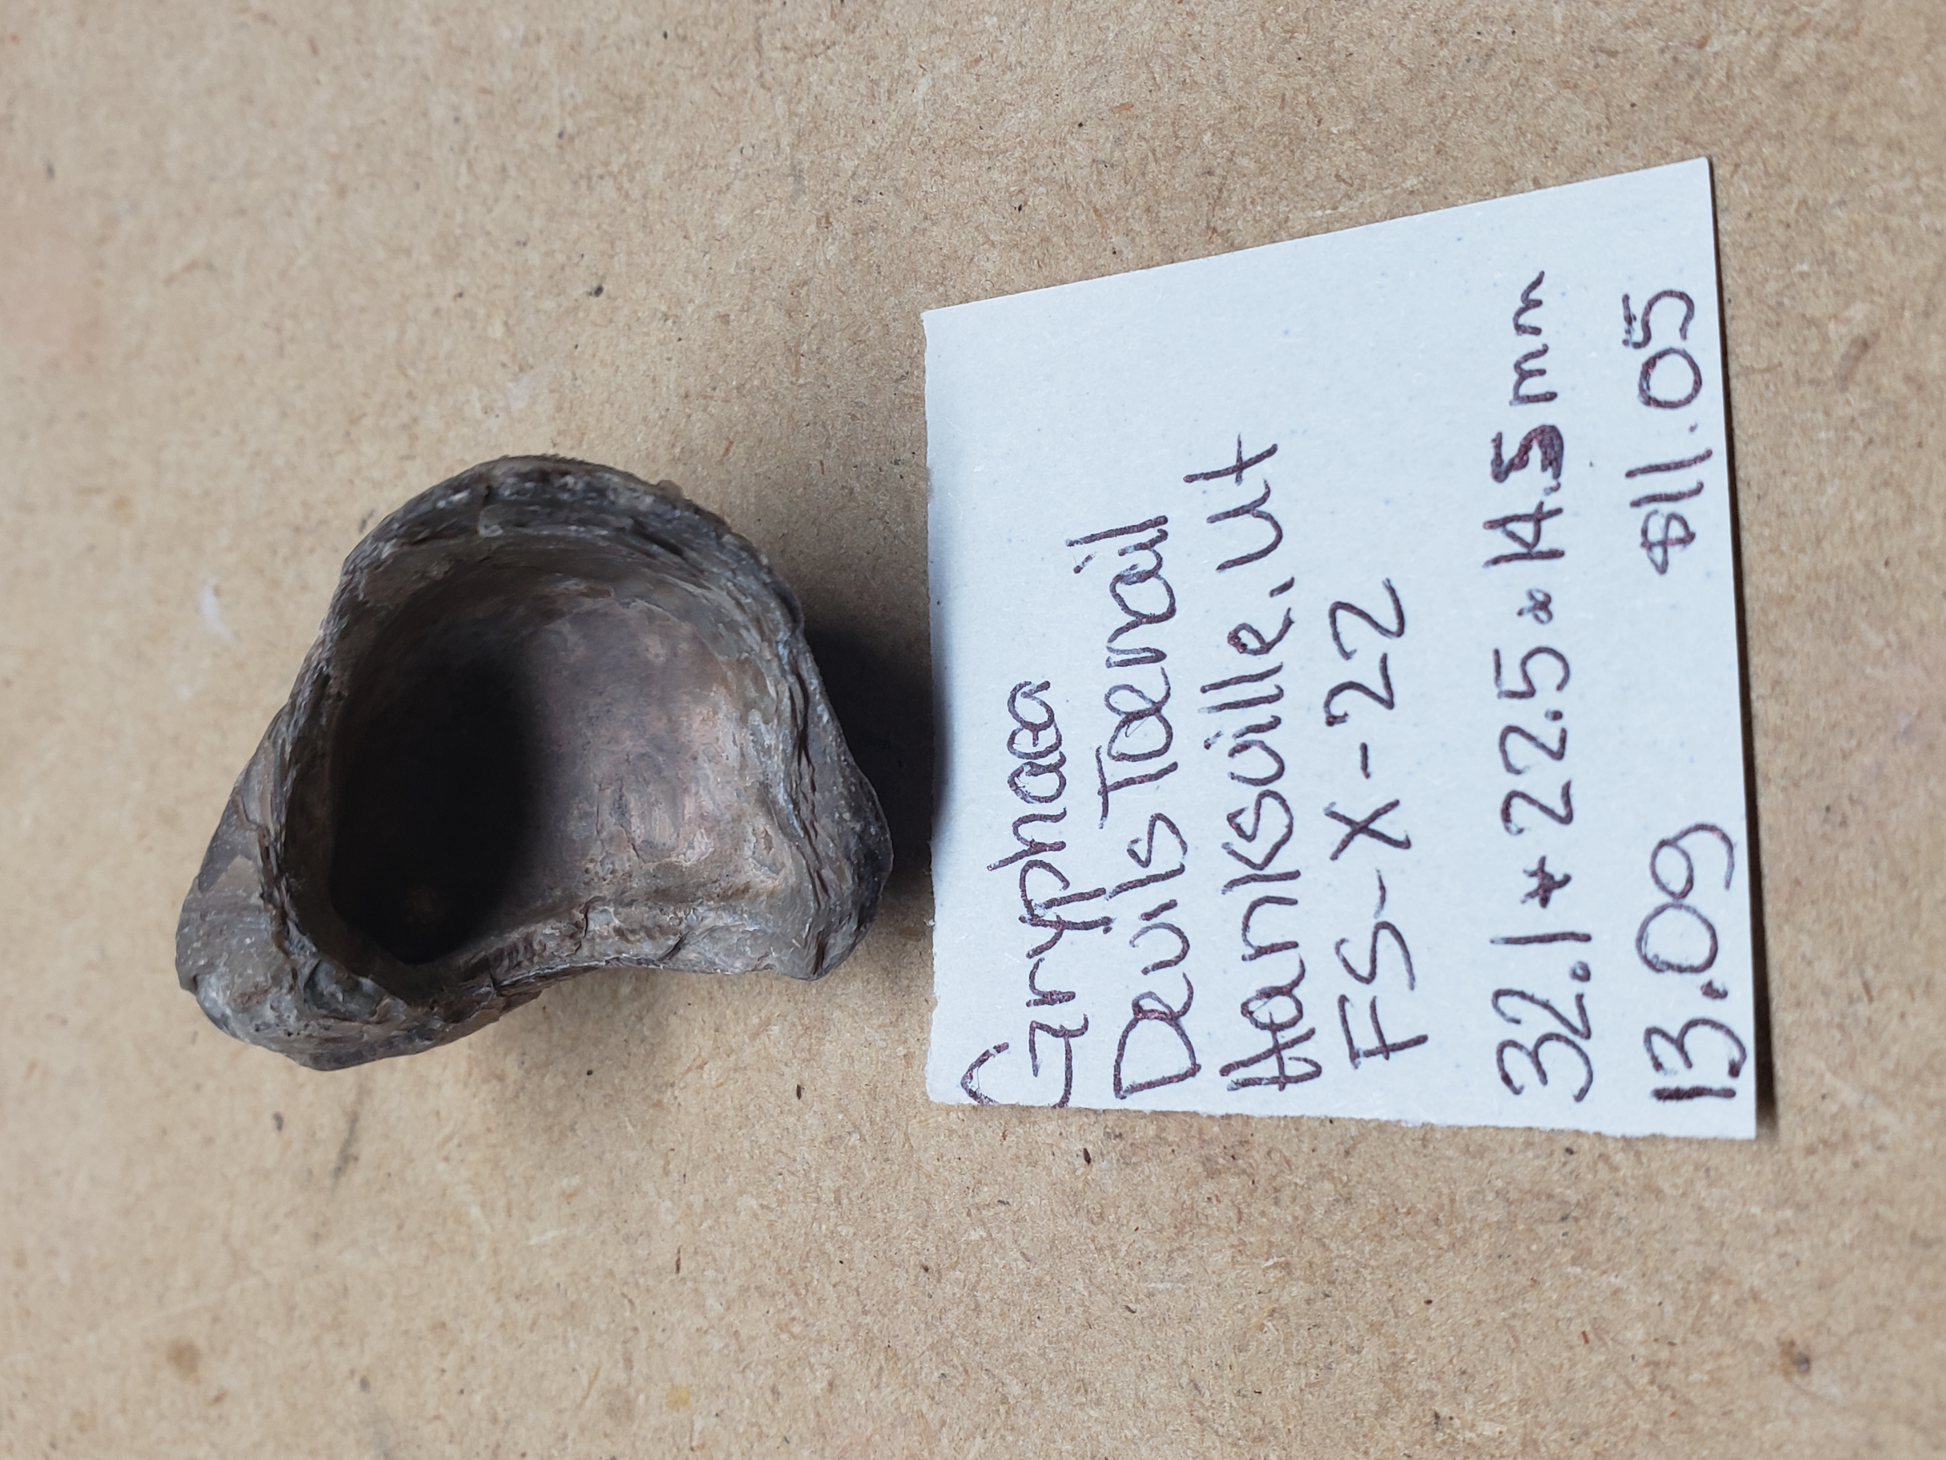 Gryphaea
Devils Toenail
Hanksville, Ut
FS-X-22
32.1*22.5*14.5mm
13.0g $11.05